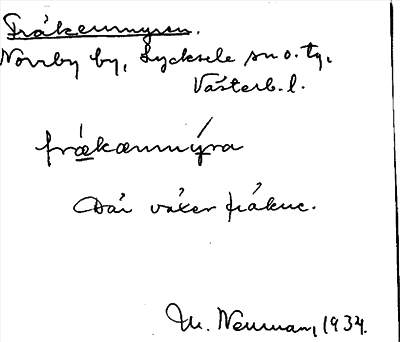 Fräkenmyren.
Norrby by, Lycksele sn o. tg.
Västerb. l.
fræ̲kænmýra
Där växer fräkne.
M. Neuman, 1934.